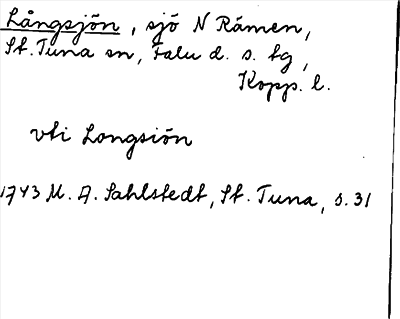 Långsjön, sjö N Råmen,
St. Tuna sn, Falu d. s. tg,
Kopp. l.
vti Longsiön
1743 M. A. Sahlstedt, St. Tuna, s. 31